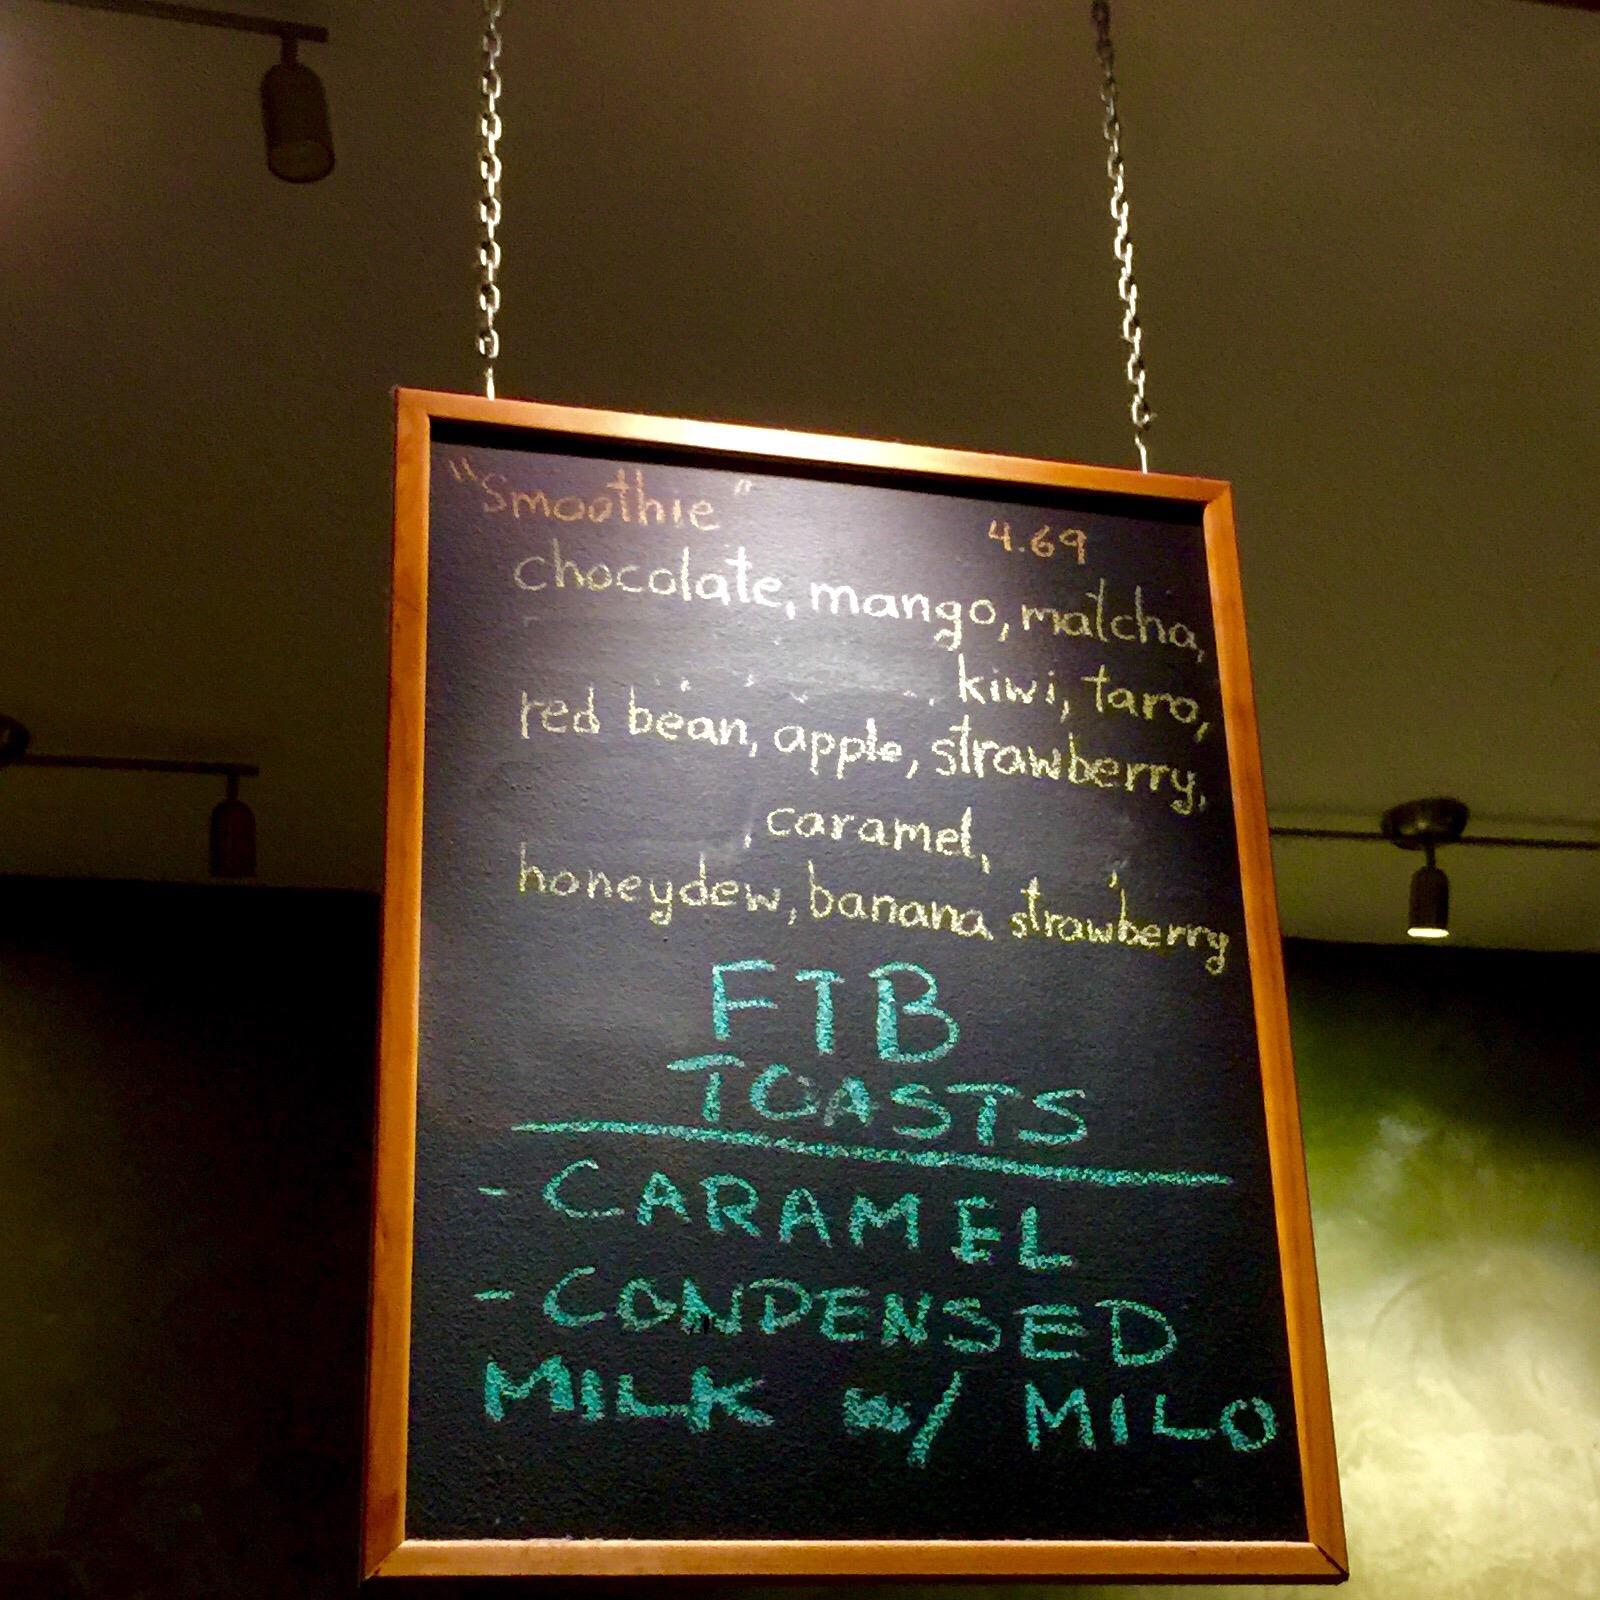 "Smoothie" 4.69
chocolate, mango, matcha,
kiwi, taro,
red bean, apple, strawberry,
, caramel,
honeydew, banana strawberry
FTB
TOASTS
- CARAMEL
- CONDENSED
MILK w/ MILO